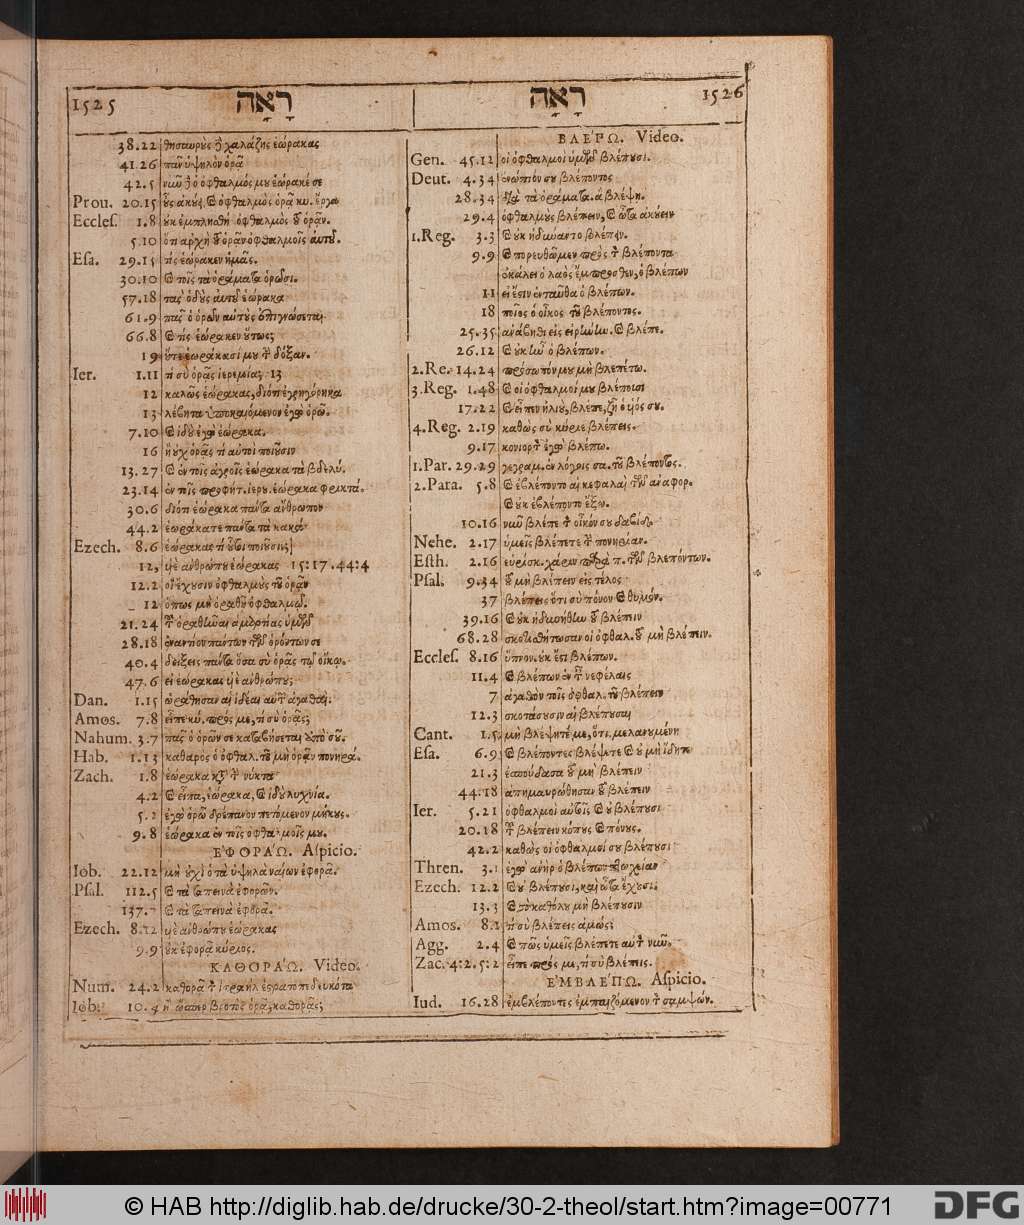 1525 רָאָה
38.22 θησαυρὺς ἢ χαλάζης ἑώρακας
41.26 πᾶν ὑψηλὸν ὁρᾷ
42.5 νυνὶ ἢ ὁ ὀφθαλμός μου ἑώρακέ σε
Prou. 20.15 ȣ̃ς ἀκȣ́ει καὶ ὀφθαλμὸς ὁρᾷ κυ. ἔργα
Eccles. 1.8 ȣ̓κ ἐμπλησθῇ ὀφθαλμὸς τȣ̃ ὁρᾷν.
5.10 ὅτι ἀρχὴ τȣ̃ ὁρᾷν ὀφθαλμοῖς αὐτȣ̃.
Esa. 29.15 τίς ἑώρακεν ἡμᾶς.
30.10 καὶ τοῖς τὰ ὁράματα ὁρῶσι.
57.18 τὰς ὁδȣ̀ς αὐτȣ̃ ἑώρακα
61.9 πᾶς ὁ ὁρῶν αὐτȣ̀ς ἐπιγνώσεται
66.8 καὶ τίς ἑώρακεν ȣ̔́τως;
19 ȣ̓́τε ἑωράκασί μȣ τὴν δόξαν.
Ier. 1.11 τί σὺ ὁρᾷς ἱερεμία; 13
12 καλῶς ἑώρακας, διότι ἐγρηγόρηκα
13 λέβητα ὑποκαιόμενον ἐγὼ ὁρῶ.
7.10 καὶ ἰδȣ̀ ἐγὼ ἑώρακα.
16 ἢ ȣ̓χ ὁρᾷς τί αὐτοὶ ποιȣ̃σιν
13.27 καὶ ἐν τοῖς ἀγροῖς ἑώρακα τὰ βδελύ.
23.14 ἐν τοῖς προφήτ. ἱερȣ. ἑώρακα φρικτά.
30.6 διότι ἑώρακα πάντα ἄνθρωπον
44.2 ἑωράκατε πάντα τὰ κακὰ
Ezech. 8.6 ἑώρακας τί ȣ̔͂τοι ποιȣ̃σιν;
12, υἱὲ ἀνθρώπȣ ἑώρακας 15:17.44:4
12.2 οἳ ἔχȣσιν ὀφθαλμȣ̀ς τȣ̃ ὁρᾷν
12 ὅπως μὴ ὁραθῇ ὀφθαλμῷ.
21.24 τȣ̃ ὁραθῆναι ἁμαρτίας ὑμῶν
28.18 ἐναντίον πάντων τῶν ὁρώντων σε
40.4 δείξεις πάντα ὅσα σὺ ὁρᾷς τῷ οἴκῳ.
47.6 εἰ ἑώρακας υἱὲ ἀνθρώπȣ;
Dan. 1.15 ὡράθησαν αἱ ἰδέαι αὐτῶν ἀγαθαί.
Amos. 7.8 εἶπε κύ. πρός με, τί σὺ ὁρᾷς;
Nahum. 3.7 πᾶς ὁ ὁρῶν σε καταβήσεται ἀπὸ σȣ̃.
Hab. 1.13 καθαρὸς ὁ ὀφθαλ. τȣ̃ μὴ ὁρᾷν πονηρά.
Zach. 1.8 ἑώρακα τὴν νύκτα
4.2 καὶ εἶπα, ἑώρακα, καὶ ἰδȣ̀ λυχνία.
5.2 ἐγὼ ὁρῶ δρέπανον πετόμενον μήκȣς.
9.8 ἑώρακα ἐν τοῖς ὀφθαλμοῖς μȣ.
ΕΦΟΡΑΏ. Aſpicio.
Iob. 22.12 μὴ ȣ̓χὶ ὁ τὰ ὑψηλὰ ναίων ἐφορᾷ.
Pſal. 112.5 καὶ τὰ ταπεινὰ ἐφορῶν.
137. καὶ τὰ ταπεινὰ ἐφορᾷ.
Ezech. 8.12 υἱὲ ἀνθρώπȣ ἑώρακας
9.9 ȣ̓κ ἐφορᾷ κύριος.
ΚΑΘΟΡΑΏ. Video.
Num. 24.2 καθορᾷ τὸν ἰσραὴλ ἐστρατοπεδευκότα
Iob. 10.4 ἢ ὥσπερ βροτὸς ὁρᾷ, καθορᾷς;
רָאָה 1526
ΒΛΕΡΩ. Video.
Gen. 45.12 οἱ ὀφθαλμοὶ ὑμῶν βλέπȣσι.
Deut. 4.34 ἐνώπιόν σȣ βλέποντος
28.34 διὰ τὰ ὁράματα, ἃ βλέψῃ.
29.4 ὀφθαλμȣ̀ς βλέπειν, καὶ ὦτα ἀκȣ́ειν
1.Reg. 3.3 καὶ ȣ̓κ ἠδύναντο βλέπειν.
9.9 καὶ πορευθῶμεν πρὸς τὸν βλέποντα
ἐκάλει ὁ λαὸς ἔμπροσθεν, ὁ βλέπων
11 εἰ ἔστιν ἐνταῦθα ὁ βλέπων.
18 ποῖος ὁ οἶκος τȣ̃ βλέποντος.
25.35 ἀνάβηθι εἰς εἰρήνην. καὶ βλέπε.
26.12 καὶ ȣ̓κ ἦν ὁ βλέπων.
2.Re. 14.24 πρόσωπόν μȣ μὴ βλεπέτω.
3.Reg. 1.48 καὶ οἱ ὀφθαλμοί μȣ βλέπȣσι
17.22 καὶ εἶπεν ἠλιȣ̀, βλέπε, ζῇ ὁ υἱός σȣ.
4.Reg. 2.19 καθὼς σὺ κύριε βλέπεις.
9.17 κονιορτὸν ἐγὼ βλέπω.
1.Par. 29.29 γεγραμ. ἐν λόγοις σα. τȣ̃ βλέποντος.
2.Para. 5.8 καὶ ἐβλέποντο αἱ κεφαλαὶ τῶν ἀναφορ.
καὶ ȣ̓κ ἐβλέποντο ἔξω.
10.16 νῦν βλέπε τὸν οἶκόν σȣ δαβίδ.
Nehe. 2.17 ὑμεῖς βλέπετε τὴν πονηρίαν.
Eſth. 2.16 εὕρισκ. χάριν παρὰ π. τῶν βλεπόντων.
Pſal. 9.34 τȣ̃ μὴ βλέπειν εἰς τέλος
37 βλέπεις ὅτι σὺ πόνον καὶ θυμὸν.
39.16 καὶ ȣ̓κ ἠδυνήθην τȣ̃ βλέπειν
68.28 σκοτισθήτωσαν οἱ ὀφθαλ. τȣ̃ μὴ βλέπειν.
Eccleſ. 8.16 ὕπνον. ȣ̓κ ἔστι βλέπων.
11.4 καὶ βλέπων ἐν ταῖς νεφέλαις
7 ἀγαθὸν τοῖς ὀφθαλ. τȣ̃ βλέπειν
12.3 σκοτάσȣσιν αἱ βλέπȣσαι
Cant. 1.5 μὴ βλέψητέ με, ὅτι μελανωμένη
Eſa. 6.9 καὶ βλέποντες βλέψετε καὶ ȣ̓ μὴ ἴδητε
21.3 ἐσπȣ́δασα τȣ̃ μὴ βλέπειν
44.18 ἀπημαυρώθησαν τȣ̃ βλέπειν
Ier. 5.21 ὀφθαλμοὶ αὐτοῖς καὶ ȣ̓ βλέπȣσι
20.18 τȣ̃ βλέπειν κόπȣς καὶ πόνȣς.
42.2 καθὼς οἱ ὀφθαλμοί σȣ βλέπȣσι
Thren. 3.1 ἐγὼ ἀνὴρ ὁ βλέπων πτωχείαν
Ezech. 12.2 καὶ ȣ̓ βλέπȣσι, καὶ ὦτα ἔχȣσι.
13.3 καὶ τὸ καθόλȣ μὴ βλέπȣσιν
Amos. 8.1 τί σὺ βλέπεις ἀμώς;
Agg. 2.4 καὶ πῶς ὑμεῖς βλέπετε αὐτὸν νῦν.
Zac. 4:2.5:2 εἶπε πρός με, τί σὺ βλέπεις.
ΕΜΒΛΕΠΩ. Aſpicio.
Iud. 16.28 ἐμβλέποντες ἐμπαιζόμενον τὸν σαμψών.
© HAB http://diglib.hab.de/drucke/30-2-theol/start.htm?image=00771 DFG